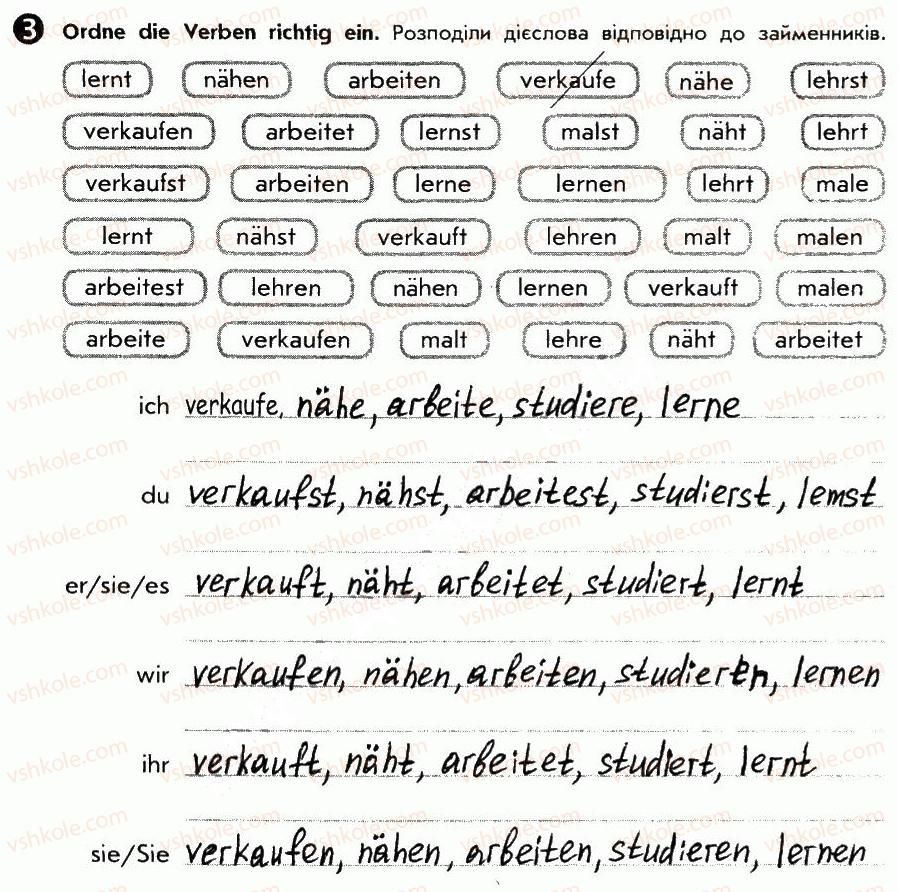 3 Ordne die Verben richtig ein. Розподіли дієслова відповідно до займенників.
lernt nähen arbeiten verkaufe nähe lehrst
verkaufen arbeitet lernst malst näht lehrt
verkaufst arbeiten lerne lernen lehrt male
lernt nähst verkauft lehren malt malen
arbeitest lehren nähen lernen verkauft malen
arbeite verkaufen malt lehre näht arbeitet
ich verkaufe, nähe, arbeite, studiere, lerne
du verkaufst, nähst, arbeitest, studierst, lernst
er/sie/es verkauft, näht, arbeitet, studiert, lernt
wir verkaufen, nähen, arbeiten, studieren, lernen
ihr verkauft, näht, arbeitet, studiert, lernt
sie/Sie verkaufen, nähen, arbeiten, studieren, lernen